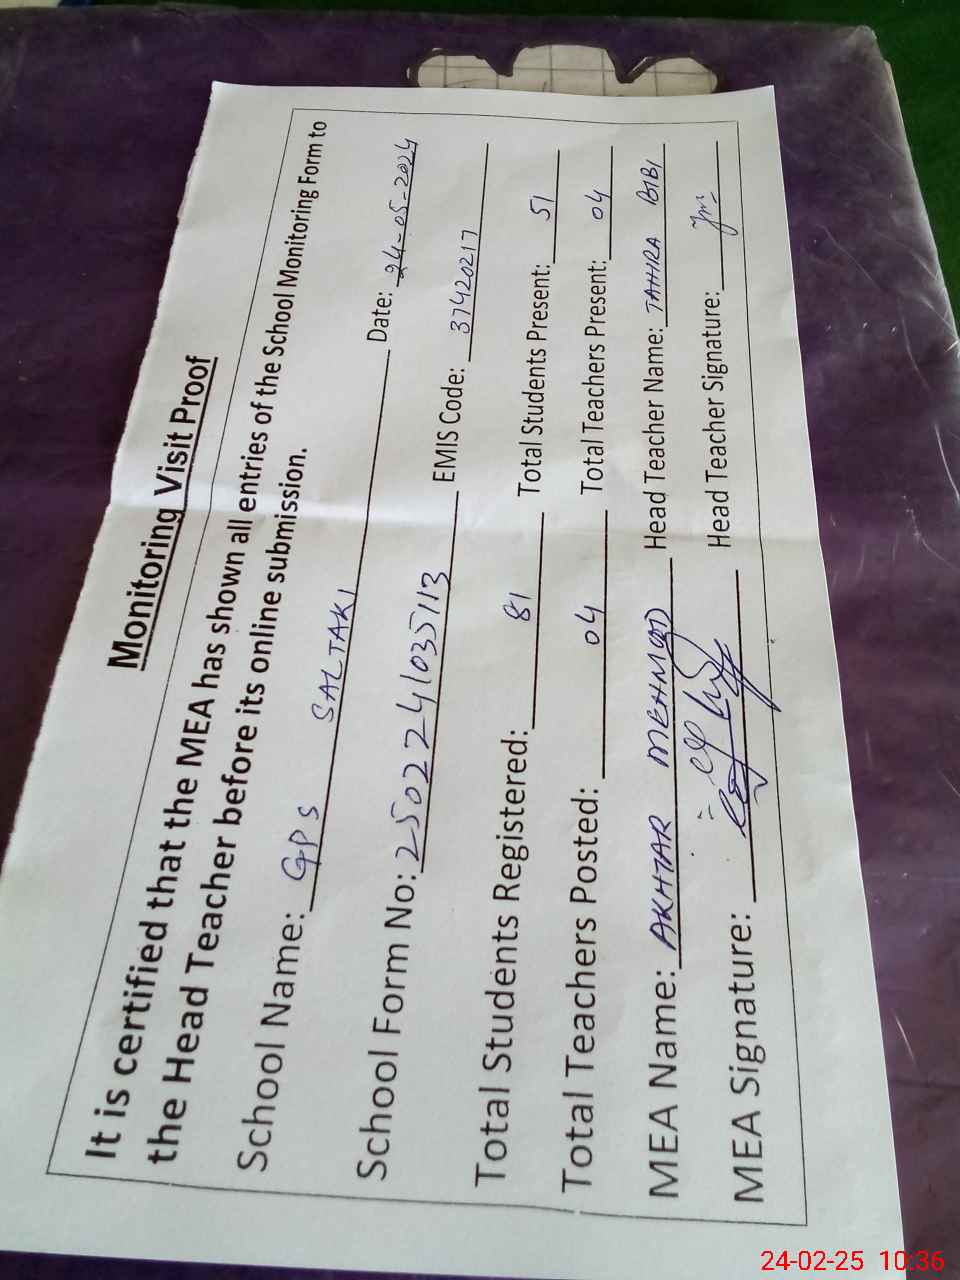 Monitoring Visit Proof
It is certified that the MEA has shown all entries of the School Monitoring Form to
the Head Teacher before its online submission.
School Name: GPS SALTAKI Date: 24-05-2024
School Form No: 2502241035113 EMIS Code: 37420217
Total Students Registered: 81 Total Students Present: 51
Total Teachers Posted: 04 Total Teachers Present: 04
MEA Name: AKHTAR MEHMOOD Head Teacher Name: TAHIRA BIBI
MEA Signature: Head Teacher Signature:
24-02-25 10:36